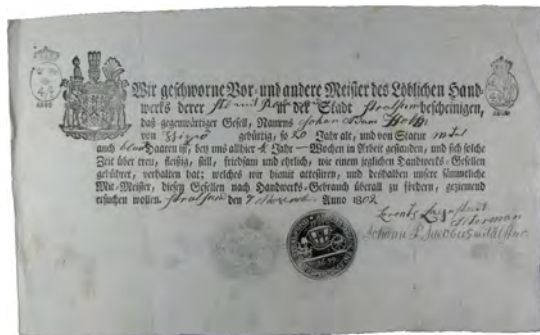 Wir geschworne Vor- und andere Meister des Löblichen Hand-
werks derer in der Stadt Stralsund bescheinigen,
daß gegenwärtiger Gesell, Namens Johan
von gebürtig, so 20 Jahr alt, und von Statur mittel
auch Haaren ist, bey uns allhier Jahr — Wochen in Arbeit gestanden, und sich solche
Zeit über treu, fleißig, still, friedsam und ehrlich, wie einem jeglichen Handwerks-Gesellen
gebühret, verhalten hat; welches wir hiemit attestiren, und deshalben unsere sämmtliche
Mit-Meister, diesen Gesellen nach Handwerks-Gebrauch überall zu fördern, geziemend
ersuchen wollen. Stralsund den 7 Anno 1802
Johann